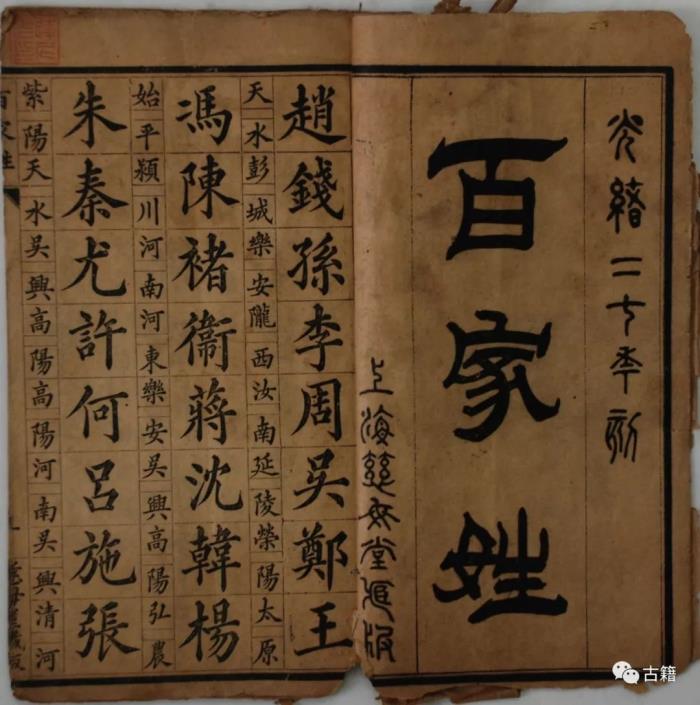 光緒二十年刻
百家姓
上海慈母堂藏版
趙錢孫李周吳鄭王
天水彭城樂安隴西汝南延陵榮陽太原
馮陳褚衞蔣沈韓楊
始平穎川河南河東樂安吳興高陽弘農
朱秦尤許何呂施張
紫陽天水吳興高陽高陽河南吳興清河
百家姓
慈母堂藏板
古籍